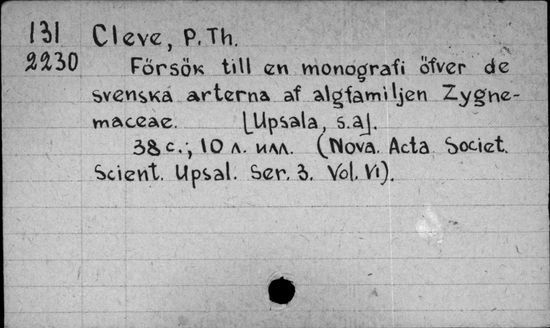 131 Cleve, P. Th.
2230 Försök till en monografi öfver de
svenska arterna af algfamiljen Zygne-
maceae. [Upsala, s.a].
38 с.; 10 л. илл. (Nova Acta Societ.
Scient. Upsal. Ser. 3. Vol. VI).